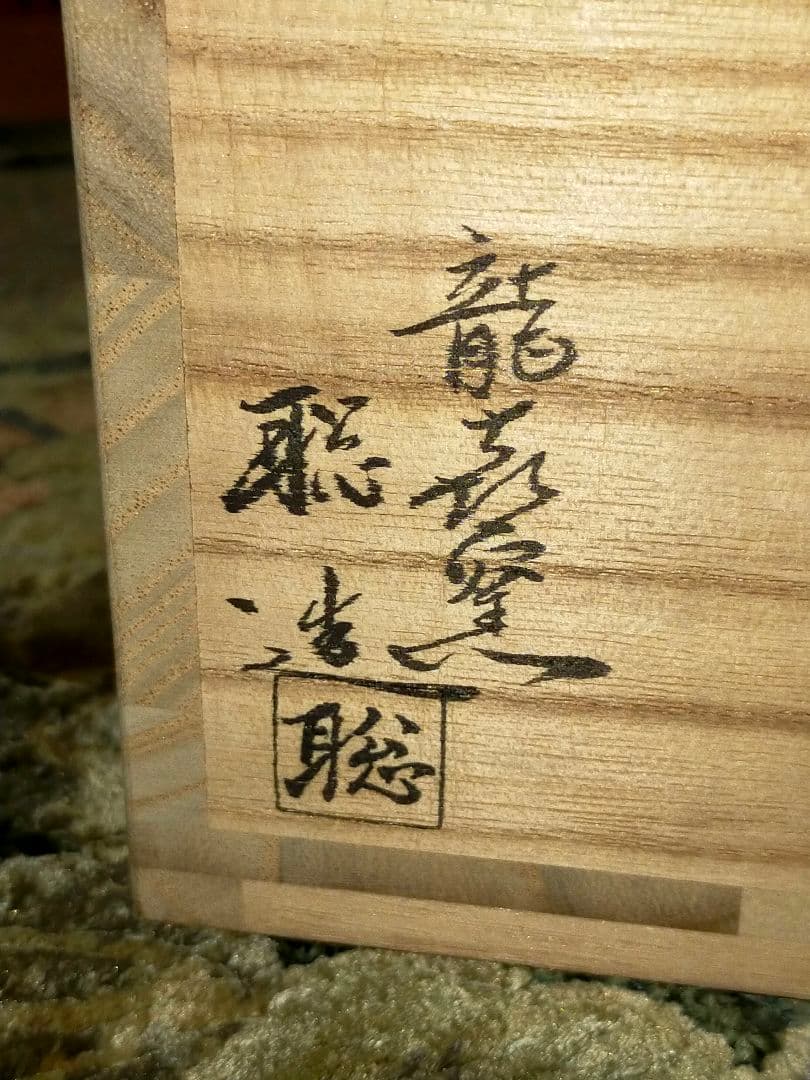 龍喜窯
聡造
聡